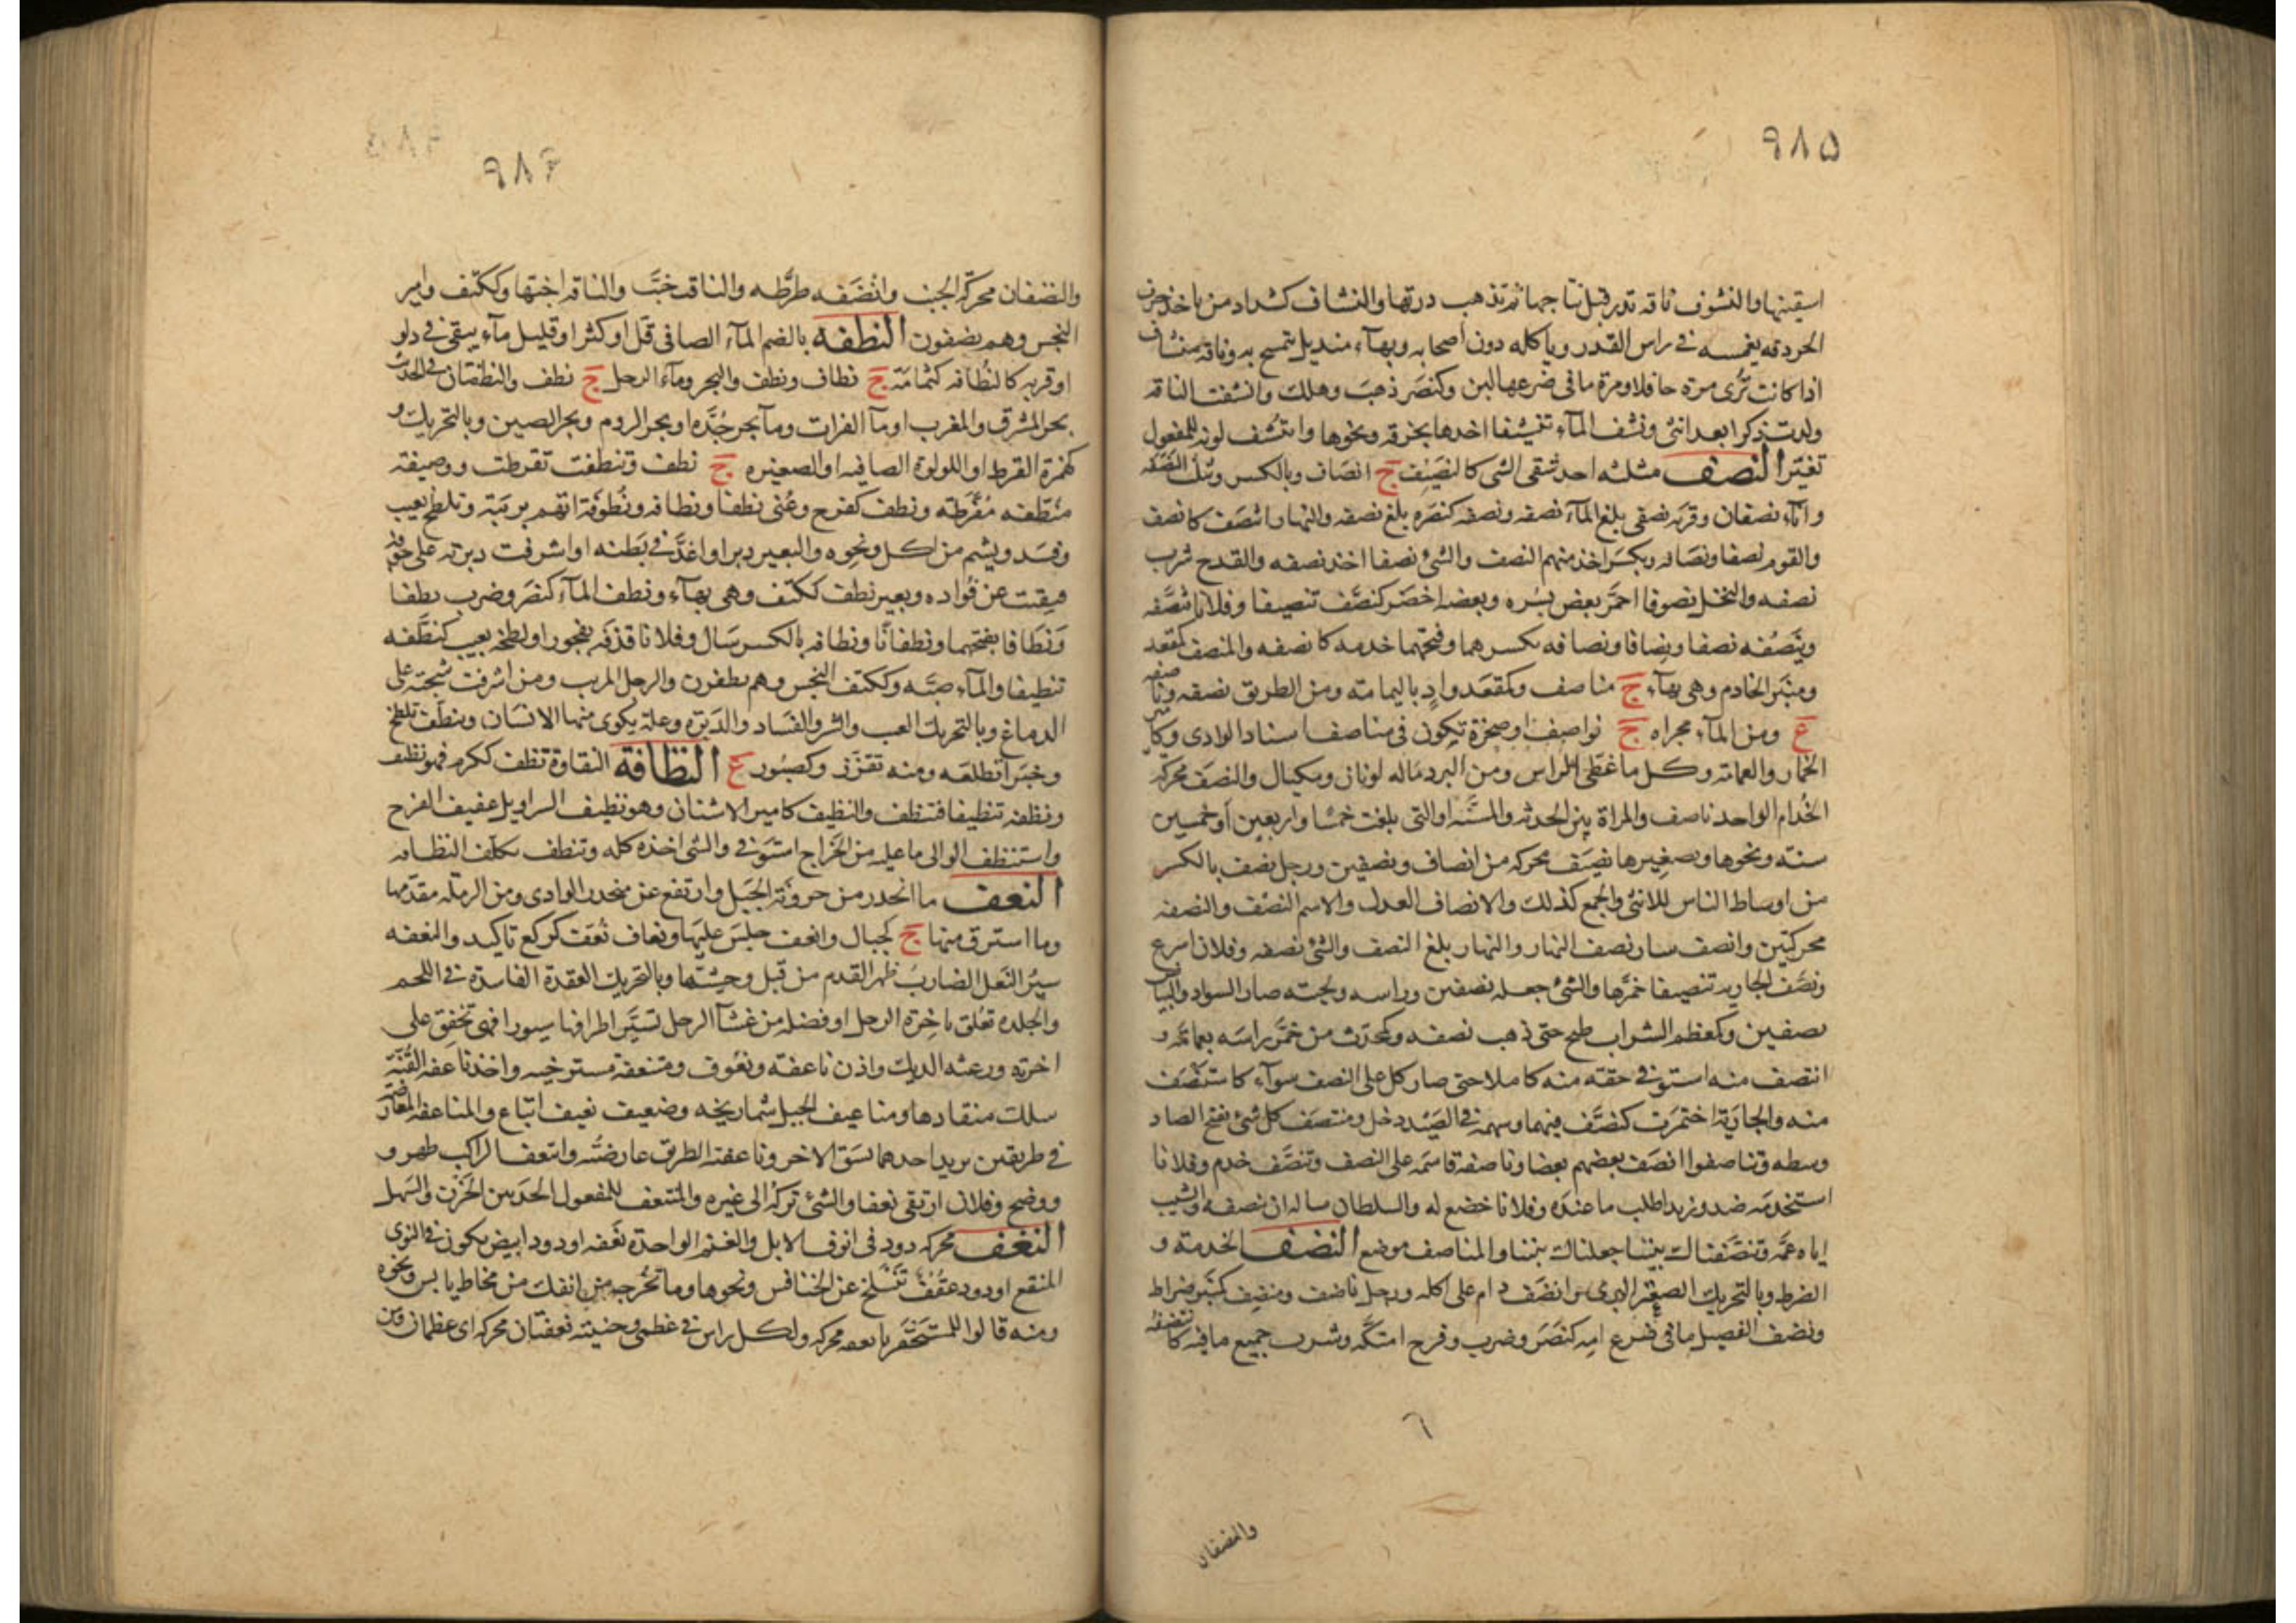 ٩٨٥
اسقينها والنشوف ناقة تدر قبل نتاجها ثم تذهب درتها والنشاف كشداد من ياخذ حرف
الحردقه يغمسه في راس القدر وياكله دون اصحابه وبهآء منديل يتمسح به وناقة منشاف
اذا كانت تُرى مرة حافلا ومرة ما في ضرعها لبن وكنصَر ذهبَ وهلك وانشفت الناقه
ولدت ذكرا بعد انثى ونشف المآء تنشيفا اخذها بخرقه ونحوها وانتشف لونه للمفعول
تغيّر النصف مثلثه احد شقى الشى كالنصَيف ج انصاف وبالكسر ويثلث النصَفه
وانآء نصفان وقربه نصفى بلغ المآء نصفه ونصفه كنصَره بلغ نصفه والنهار انتصَف كانصف
والقوم نصفا ونصَافه ويكسَر اخذ منهم النصف والشئ نصفا اخذ نصفه والقدح شرب
نصفه والنخل نصوفا احمَّر بعض بُسره وبعضه اخضر كنصَّف تنصيفا وفلانا نصَّفه
وينَصُفه نصفا ونِصافا ونصافه بكسرهما وفتحهما خدمه كانصفه والمنصف كمقعد
ومنبَر الخادم وهى بهآء ج مناصف وكمقعَد وادٍ باليمامة ومن الطريق نصفه وناصفه
ع ومن المآء مجراه ج نواصف او صخرة تكون في مناصف اسناد الوادى وكامير
الخمار والعمامه وكل ما غطّى الراس ومن البرد ماله لونان ومكيال والنصَف محركه
الخُدام الواحد ناصف والمراة بين الحدثه والمسَّنه او التى بلغت خمسا واربعين أو خمسين
سنته ونحوها وتصغيرها نصَيَف محركه من انصاف ونصفين ورجل نصف بالكسر
من اوساط الناس للانثى والجمع كذلك والانصاف العدل والاسم النصَف والنصفه
محركتين وانصف سار نصف النهار والنهار بلغ النصف والشئ نصفه وفلان اسرع
ونصَف الجاريه تنصيفا خمَّرها والشئ جعله نصفين وراسه ولحيته صار السواد والبياض
نصفين وكمعظم الشراب طبخ حتى ذهب نصفه وكمحدّث من خمَّر راسَه بعمامه و
انتصف منه استوفى حقه منه كاملا حتى صار كل على النصف سوآء كاستنصَف
منه والجاريَة اختمرَت كنصَّف فيهما وسهمه في الصيَد دخل ومنتصَف كل شئ بفتح الصاد
وسطه وتناصفوا انصَف بعضهم بعضا وناصفة قاسَمَه على النصف وتنصَّف خدم وفلانا
استخدمَه ضد وزيدا طلب ما عنده وفلانا خضع له والسلطان ساله ان ينصفه والشيب
اياه عمَّه وتنصَّفناك بيننا جعلناك بيننا والمناصف موضع النضف الخدمة و
الضرط وبالتحريك الصعتر البرى وانضَف دام على اكله ورجل ناضف ومنضِف كمنبر ضراط
ونضف الفصيل ما فى ضرع امه كنصَر وضرب وفرح امتكَّه وشرب جميع ما فيه كانتضفه
٦
والنضفان
٩٨٦
والنضفان محركه الخبب وانضَفه ضرَّطه والناقة خبَّت والناقه اخبّها وككتف وامير
النجس وهم نضفون النطفه بالضم المآء الصافى قل او كثر او قليل مآء يبقى في دلو
او قربه كالنُطافه كثمامَة ج نطاف ونطف والبحر ومآء الرجل ج نطف والنطفتان في الحديث
بحر المشرق والمغرب او مآ الفرات ومآ بحر جُدَّه او بحر الروم وبحر الصين وبالتحريك و
كهمزة القرط او اللولوة الصافيه او الصغيره ج نطف وتنطفت تقرطت ووصيفة
منطّفه مُقرَّطة ونطف كفرح وعُنى نطفا ونطافه ونُطوفة اتهم بريَبة وتلطخ بعيب
وفسَد وبشم من اكل ونحوه والبعير دبر او اغدَّ في بَطنه او اشرفت دبرته على جوفه
فنقبت عن فؤاده وبعير نطف ككتف وهى بهآء ونطف المآء كنصَر وضرب نطفا
وَنَطافا بفتحهما ونطفانًا ونطافه بالكسر سَال وفلانا قذفَه بفجور او لطخه بعيب كنطَّفه
تنطيفا والمآء صبَّه وككتف النجس وهم نطفون والرجل المريب ومن اشرفت شجته على
الدماغ وبالتحريك العيب والشر والفسَاد والدَبَره وعلة يكوى منها الانسَان وتنطّف تلطخ
وخبَرا تطلعَه ومنه تقزَز وكصبُور ع النظافة النقاوة نظف ككرم فهو نظيف
ونظفه تنظيفا فتنظف والنظيف كامير الاشنان وهو نظيف السراويل عفيف الفرج
واستنظف الوالى ما عليه من الخَراج استوفى والشى اخذه كله وتنظف تكلف النظافه
النعف ما انحدر من حزونَة الجبَل وارتفع عن منحدر الوادى ومن الرملَه مقدّمها
وما استرق منها ج كجبال وانعف جلسَ عليهَا ونعاف نُعَف كركع تاكيد والنعفه
سيَرُ النَعل الضاربُ ظهر القدم من قبل وحشيّها وبالتحريك العقدة الفاسدة في اللحم
والجلده تعُلق باخِرة الرحل او فضله من غشآ الرحل تسَيَّر اطرافها سيورا فهى تخفِق على
اخرته ورعثه الديك واذن ناعفة ونعوف ومنتعفة مسترخيه واخذ ناعفه القُنّة
سلك منقادها ومناعيف الجبل شماريخه وضعيف نعيف اتباع والمناعفه المعارضة
في طريقين يريد احدهما سَبق الاخر وناعفته الطريق عارضتُه وانتعف الراكب ظهر و
ووضح وفلان ارتقى نعفا والشئ تركه الى غيره والمنتعَف للمفعول الحد بين الحَزن والسَهل
النغف محركه دود فى انوف الابل والغنم الواحدة نغَفه او دود ابيض يكون في النوى
المنقع او دود عقُفٌ تنسَلخ عن الخنافس ونحوها وما تخُرجه من انفك من مخاط يابس ونحوه
ومنه قالوا للمستَحقَر يا نغفه محركه ولكل راس في عظمى وجنيته نغفتان محركه اى عظمان ومن